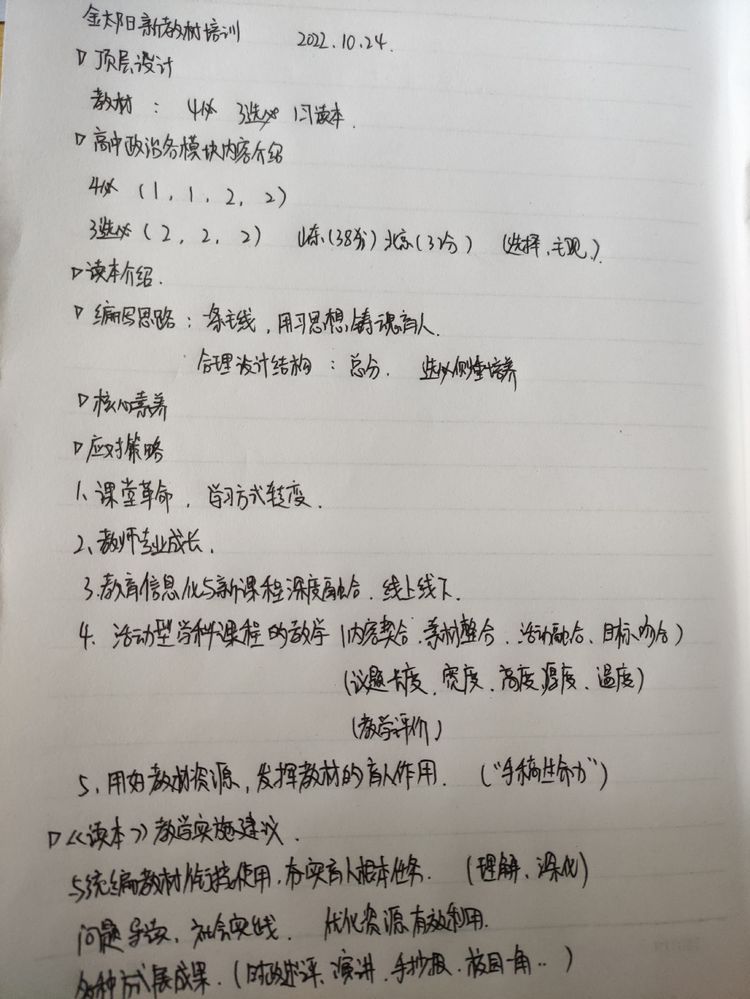 金太阳新教材培训 2022.10.24.
▷顶层设计
教材: 4必 3选必 1习读本.
▷高中政治各模块内容介绍
4必 (1, 1, 2, 2)
3选必 (2, 2, 2) 山东(38分)北京(31分) (选择、主观、)
▷读本介绍.
▷编写思路: 一条主线, 用习思想铸魂育人.
合理设计结构: 总分. 选必侧重培养
▷核心素养
▷应对策略
1、课堂革命, 学习方式转变.
2、教师专业成长.
3.教育信息化与新课程深度融合. 线上线下.
4. 活动型学科课程的教学 (内容契合、素材整合、活动融合、目标吻合)
(议题长度、宽度、高度、厚度、温度)
(教学评价)
5、用好教材资源, 发挥教材的育人作用. ("手稿生命力")
▷《读本》教学实施建议.
与统编教材衔接使用, 夯实育人根本任务. (理解、深化)
问题导读、社会实践、 优化资源有效利用.
多种方式展成果. (时政述评、演讲、手抄报、校园一角..)